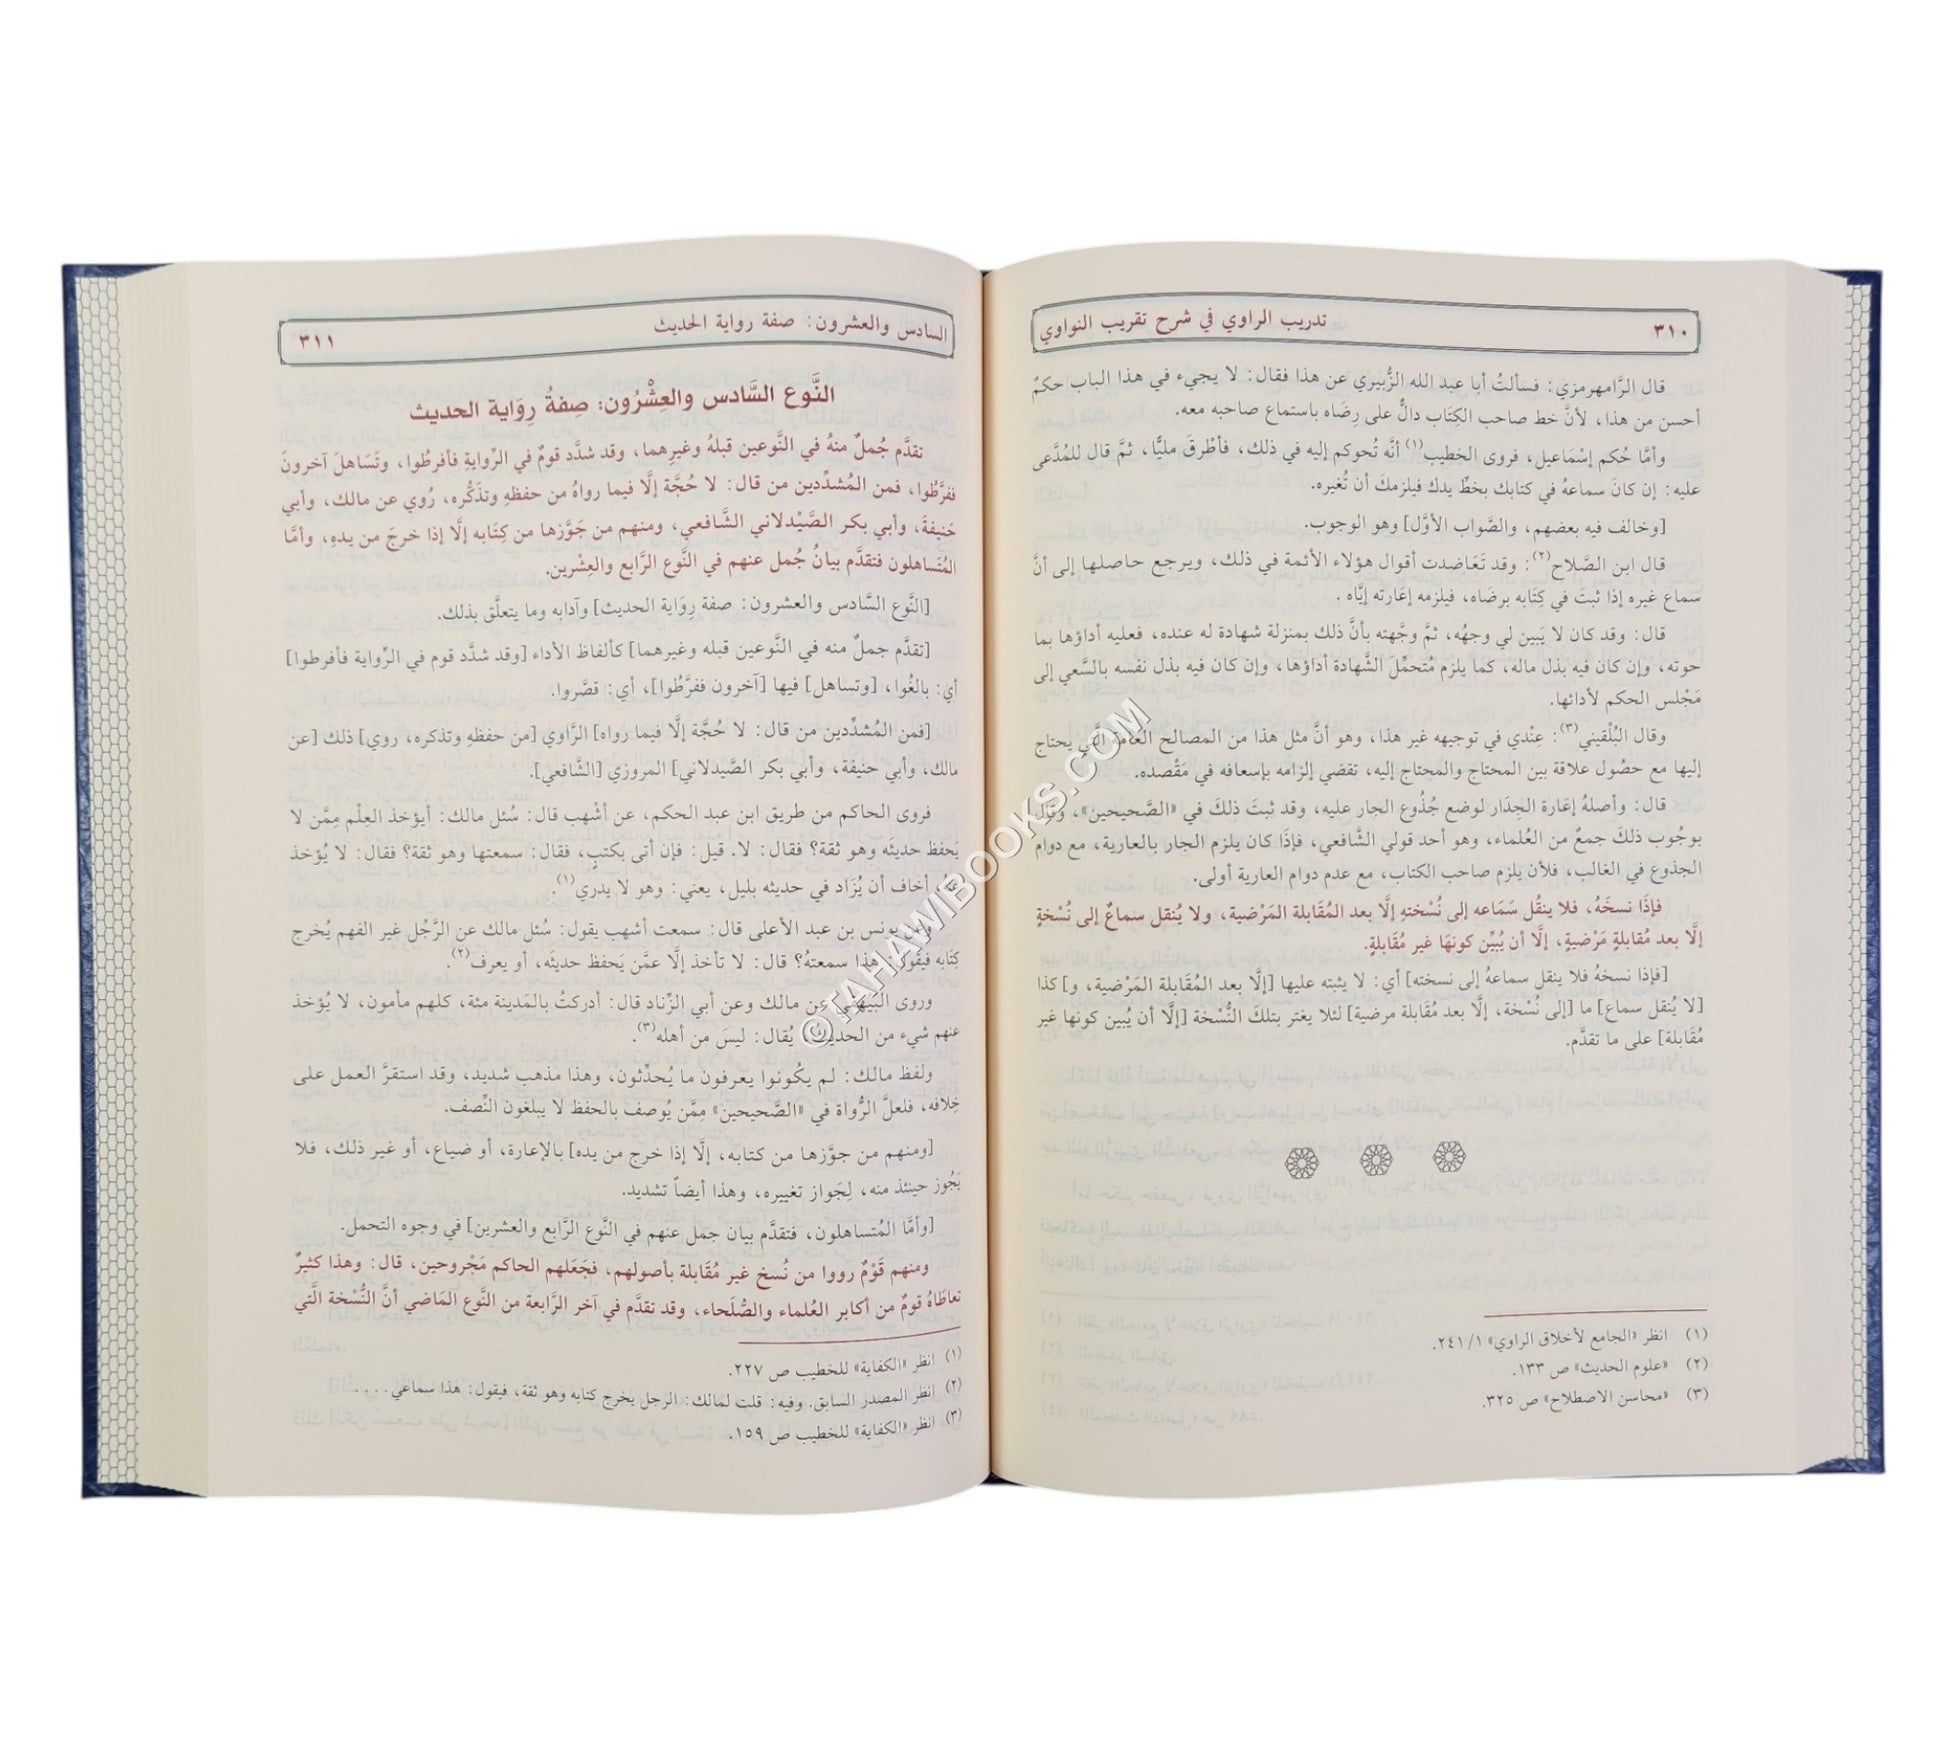 تدريب الراوي في شرح تقريب النواوي
٣١٠
قال الرَّامهرمزي: فسألتُ أبا عبد الله الزُّبيري عن هذا فقال: لا يجيء في هذا الباب حكمٌ
أحسن من هذا، لأنَّ خط صاحب الكِتَاب دالٌّ على رِضَاه باستماع صاحبه معه.
وأمَّا حُكم إسْمَاعيل، فروى الخطيب(١) أنَّه تُحوكم إليه في ذلك، فأطْرقَ مليًّا، ثمَّ قال للمُدَّعى
عليه: إن كانَ سماعهُ في كتابك بخطِّ يدك فيلزمكَ أن تُغيره.
[وخالف فيه بعضهم، والصَّواب الأوَّل] وهو الوجوب.
قال ابن الصَّلاح(٢): وقد تَعَاضدت أقوال هؤلاء الأئمة في ذلك، ويرجع حاصلها إلى أنَّ
سماع غيره إذا ثبتَ في كِتَابه برضَاه، فيلزمه إعَارته إيَّاه.
قال: وقد كان لا يَبين لي وجههُ، ثمَّ وجَّهته بأنَّ ذلك بمنزلة شهادة له عنده، فعليه أداؤها بما
حوته، وإن كان فيه بذل ماله، كما يلزم مُتحمِّلَ الشَّهادة أداؤها، وإن كان فيه بذل نفسه بالسَّعي إلى
مَجْلس الحكم لأدائها.
وقال البُلْقيني(٣): عِنْدي في توجيهه غير هذا، وهو أنَّ مثل هذا من المصالح العامَّة الَّتي يحتاج
إليها مع حصُول علاقة بين المحتاج والمحتاج إليه، تقضي إلزامه بإسعافه في مَقْصده.
قال: وأصلهُ إعَارة الجِدَار لوضع جُذُوع الجار عليه، وقد ثبتَ ذلكَ في «الصَّحيحين»، وقال
بوجُوب ذلكَ جمعٌ من العُلماء، وهو أحد قولي الشَّافعي، فإذَا كان يلزم الجار بالعارية، مع دوام
الجذوع في الغالب، فلأن يلزم صاحب الكتاب، مع عدم دوام العارية أولى.
فإذَا نسخَهُ، فلا ينقُل سَمَاعه إلى نُسْختهِ إلَّا بعد المُقَابلة المَرْضية، ولا يُنقل سماعٌ إلى نُسْخةٍ
إلَّا بعد مُقابلةٍ مَرْضيةٍ، إلَّا أن يُبيِّن كونهَا غير مُقَابلةٍ.
[فإذا نسخهُ فلا ينقل سماعهُ إلى نسخته] أي: لا يثبته عليها [إلَّا بعد المُقَابلة المَرْضية، و] كذا
[لا يُنقل سماع] ما [إلى نُسْخة، إلَّا بعد مُقَابلة مرضية] لئلا يغتر بتلكَ النُّسْخة [إلَّا أن يُبين كونها غير
مُقَابلة] على ما تقدَّم.
(١) انظر «الجامع لأخلاق الراوي» ٢٤١/١.
(٢) «علوم الحديث» ص ١٣٣.
(٣) «محاسن الاصطلاح» ص ٣٢٥.
السادس والعشرون: صفة رواية الحديث
٣١١
النَّوع السَّادس والعِشْرُون: صِفةُ رِوَاية الحديث
تقدَّم جُملٌ منهُ في النَّوعين قبلهُ وغيرِهما، وقد شدَّد قومٌ في الرِّوايةِ فأفرطُوا، وتَسَاهلَ آخرونَ
ففرَّطُوا، فمن المُشدِّدين من قال: لا حُجَّة إلَّا فيما رواهُ من حفظهِ وتذَكُّره، رُوي عن مالك، وأبي
حَنيفةَ، وأبي بكر الصَّيْدلاني الشَّافعي، ومنهم من جَوَّزها من كِتَابه إلَّا إذا خرجَ من يدهِ، وأمَّا
المُتَساهلون فتقدَّم بيانُ جُمل عنهم في النَّوع الرَّابع والعِشْرين.
[النَّوع السَّادس والعشرون: صفة رِوَاية الحديث] وآدابه وما يتعلَّق بذلك.
[تقدَّم جملٌ منه في النَّوعين قبله وغيرهما] كألفاظ الأداء [وقد شدَّد قوم في الرِّواية فأفرطوا]
أي: بالغُوا، [وتساهل] فيها [آخرون ففرَّطُوا]، أي: قصَّروا.
[فمن المُشدِّدين من قال: لا حُجَّة إلَّا فيما رواه] الرَّاوي [من حفظهِ وتذكره، روي] ذلك [عن
مالك، وأبي حنيفة، وأبي بكر الصَّيدلاني] المروزي [الشَّافعي].
فروى الحاكم من طريق ابن عبد الحكم، عن أشْهب قال: سُئل مالك: أيؤخذ العِلْم مِمَّن لا
يَحفظ حديثَه وهو ثقة؟ فقال: لا. قيل: فإن أتى بكتبٍ، فقال: سمعتها وهو ثقة؟ فقال: لا يُؤخذ
عنهُ، أخاف أن يُزَاد في حديثه بليل، يعني: وهو لا يدري(١).
وعن يونس بن عبد الأعلى قال: سمعت أشهب يقول: سُئل مالك عن الرَّجُل غير الفهم يُخرج
كِتَابه فيقول: هذا سمعتهُ؟ قال: لا تأخذ إلَّا عمَّن يَحفظ حديثَه، أو يعرف(٢).
وروى البَيْهقي عن مالك وعن أبي الزِّناد قال: أدركتُ بالمَدينة مئة، كلهم مأمون، لا يُؤخذ
عنهم شيء من الحديث، يُقال: ليسَ من أهله(٣).
ولفظ مالك: لم يكُونوا يعرفون ما يُحدِّثون، وهذا مذهب شديد، وقد استقرَّ العمل على
خِلافه، فلعلَّ الرُّواة في «الصَّحيحين» مِمَّن يُوصف بالحفظ لا يبلغون النِّصف.
[ومنهم من جوَّزها من كتابه، إلَّا إذا خرج من يده] بالإعارة، أو ضياع، أو غير ذلك، فلا
يَجُوز حينئذ منه، لِجَواز تغييره، وهذا أيضاً تشديد.
[وأمَّا المُتساهلون، فتقدَّم بيان جمل عنهم في النَّوع الرَّابع والعشرين] في وجوه التحمل.
ومنهم قَوْمٌ رووا من نُسخ غير مُقَابلة بأصولهم، فجَعَلهم الحاكم مَجْروحين، قال: وهذا كثيرٌ
تعاطَاهُ قومٌ من أكابر العُلماء والصُّلَحاء، وقد تقدَّم في آخر الرَّابعة من النَّوع المَاضي أنَّ النُّسْخة الَّتي
(١) انظر «الكفاية» للخطيب ص ٢٢٧.
(٢) انظر المصدر السابق. وفيه: قلت لمَالك: الرجل يخرج كتابه وهو ثقة، فيقول: هذا سماعي....
(٣) انظر «الكفاية» للخطيب ص ١٥٩.
©TAHAWIBOOKS.COM